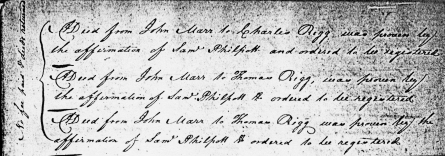 A Deed from John Marr to Charles Rigg was proven by
the affirmation of Saml Philpott and ordered to be registered
A Deed from John Marr to Thomas Rigg, was proven by
the affirmation of Saml Philpott & ordered to be registered
A Deed from John Marr to Thomas Rigg was proven by the
affirmation of Saml Philpott & ordered to be registered
No fee paid